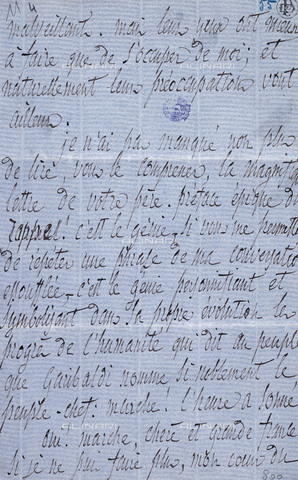 malveillant. mais leurs yeux ont mieux
à faire que de s'occuper de moi; et
naturellement leur préoccupation vont
ailleurs.
je n'ai pas manqué non plus
de lire, vous le comprenez, la magnif
lettre de votre père. préface épique du
rappel! c'est le génie - si vous me permettez
de répéter une phrase de ma conversation
essoufflée - c'est le génie personnifiant et
symbolisant dans sa propre évolution le
progrès de l'humanité qui dit au peuple
que Garibaldi nomme si noblement le
peuple-chef: marche! l'heure a sonné
oui. marche, chère et grande france
si je ne puis faire plus, mon cœur du
ALINARI
ALINARI
ALINARI